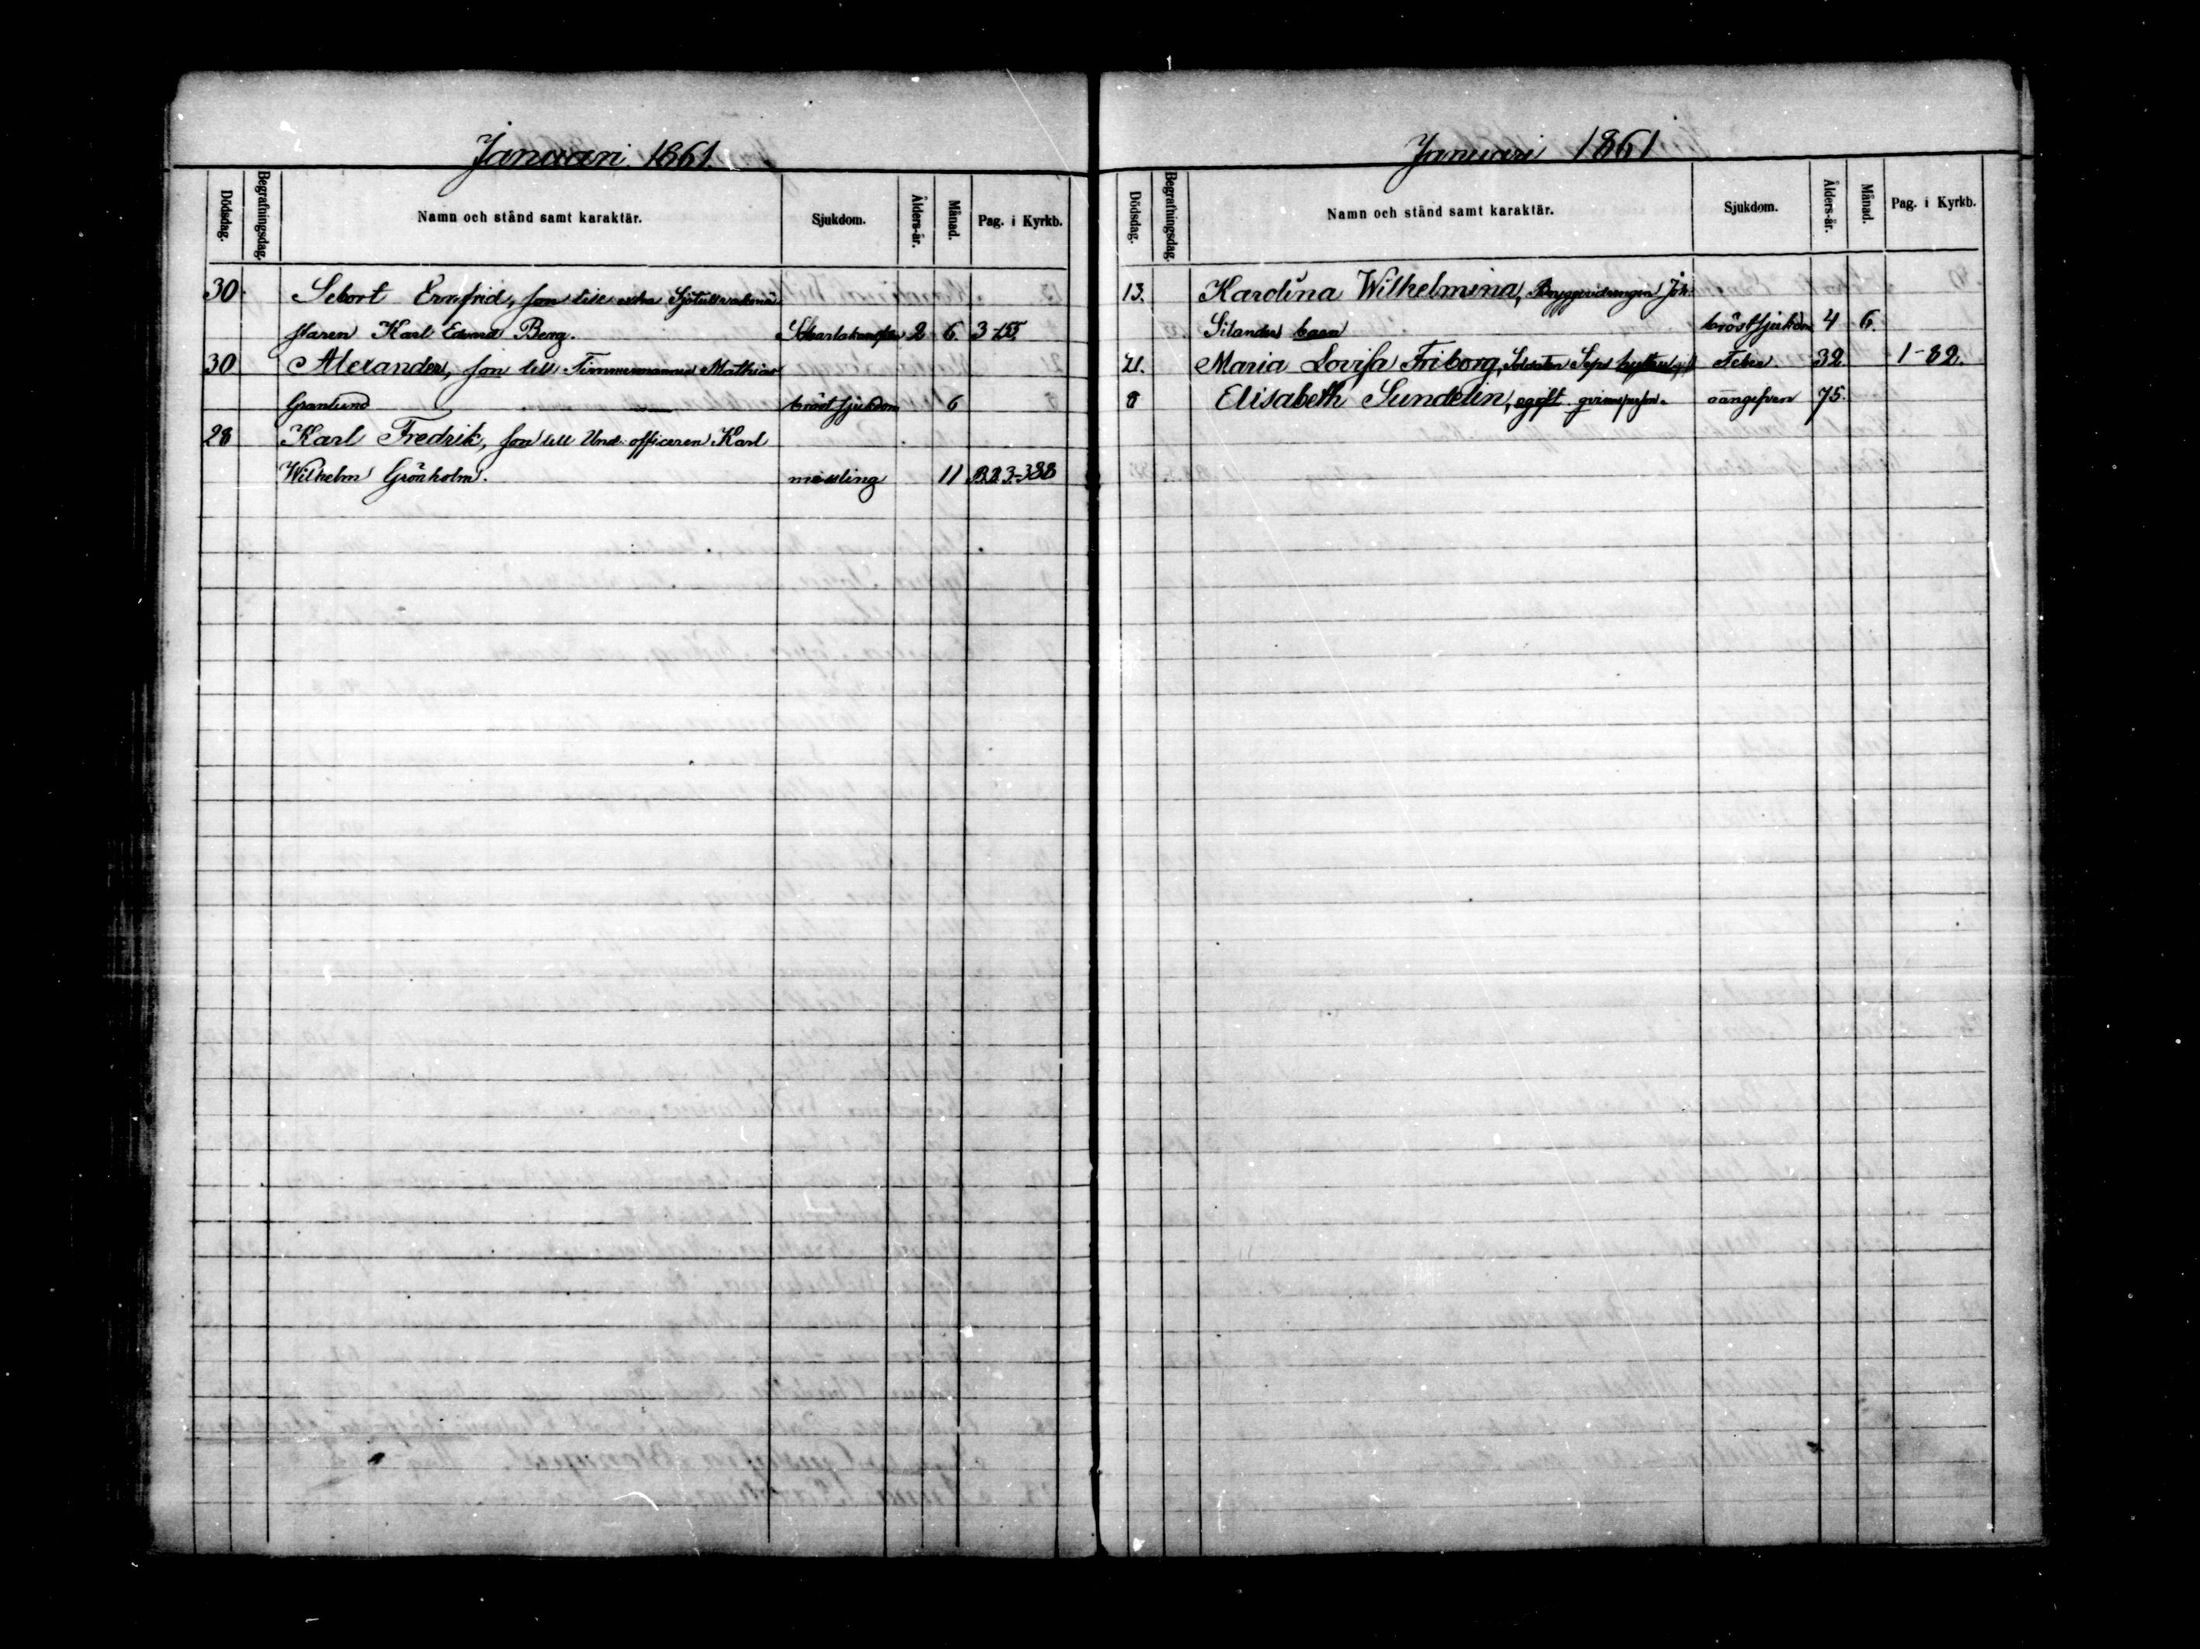 Januari 1861.
Dödsdag. Begrafningsdag. Namn och stånd samt karaktär. Sjukdom. Ålders-år. Månad. Pag. i Kyrkb.
30. Sebort Ernfrid, son till extra Sjötullvaktmä-
staren Karl Edvard Berg. Skarlakansfeber 2 6. 3-155
30 Alexander, son till Timmermannen Mathias
Granlund bröstsjukdom 6
28 Karl Fredrik, son till Und. officeren Karl
Wilhelm Grönholm. messling 11 B.2.3-388
Januari 1861
Dödsdag. Begrafningsdag. Namn och stånd samt karaktär. Sjukdom. Ålders-år. Månad. Pag. i Kyrkb.
13. Karolina Wilhelmina, Bryggeridrengen Joh.
Silanders barn bröstsjukdom 4 6.
21. Maria Lovisa Friborg, Soldaten Seps Feber. 32 1-82.
8 Elisabeth Sundelin, ogift qvinnsperson. oangifven 75.